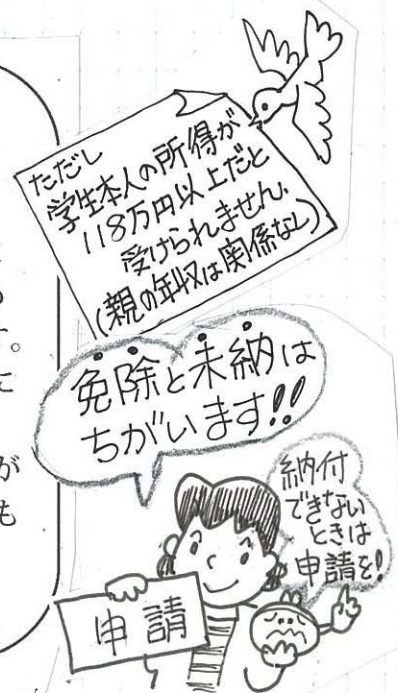 ただし
学生本人の所得が
118万円以上だと
受けられません。
(親の年収は関係なし)
免除と未納は
ちがいます!!
納付
できない
ときは
申請を!
申請
。
に
が
も